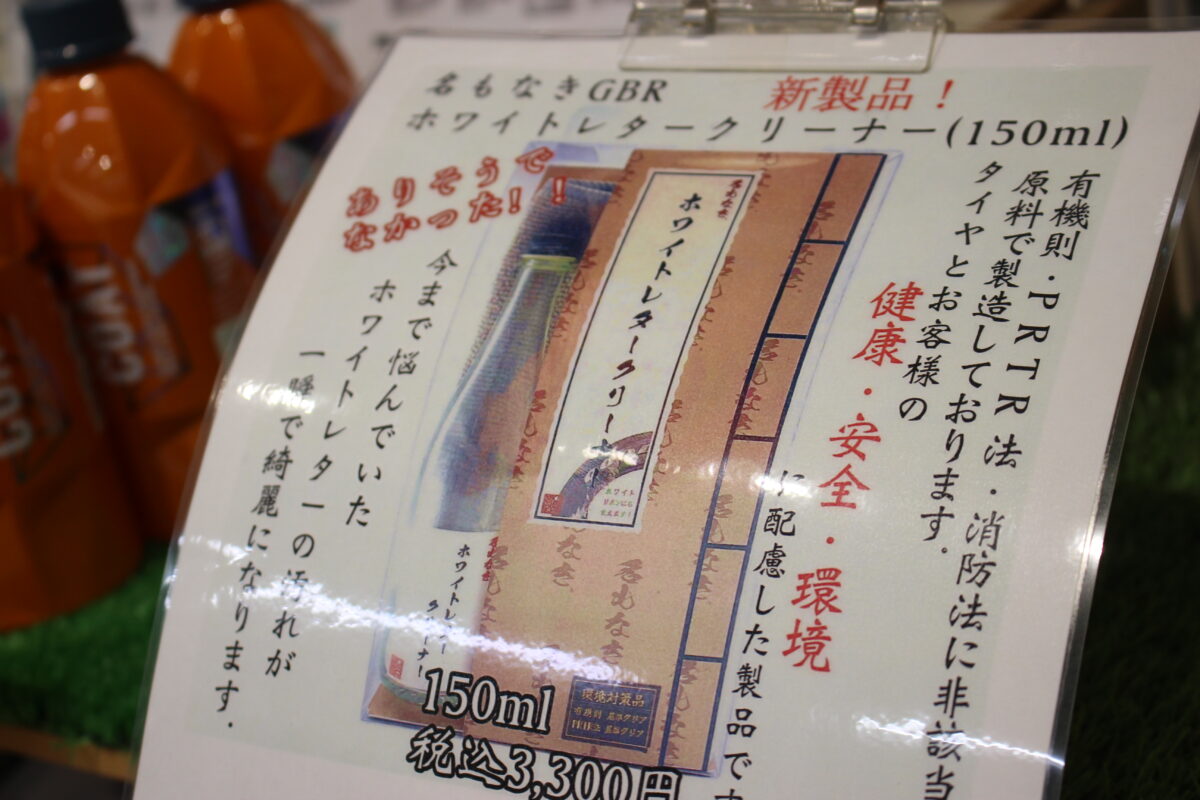 名もなきGBR
新製品！
ホワイトレタークリーナー(150ml)
ありそうで
なかった!!
有機則・PRTR法・消防法に非該当
原料で製造しております．
タイヤとお客様の
健康・安全・環境
に配慮した製品で
今まで悩んでいた
ホワイトレターの汚れが
一瞬で綺麗になります．
名もなき
ホワイトレタークリーナー
ホワイトレター
クリーナー
環境対策品
150ml
税込3,300円